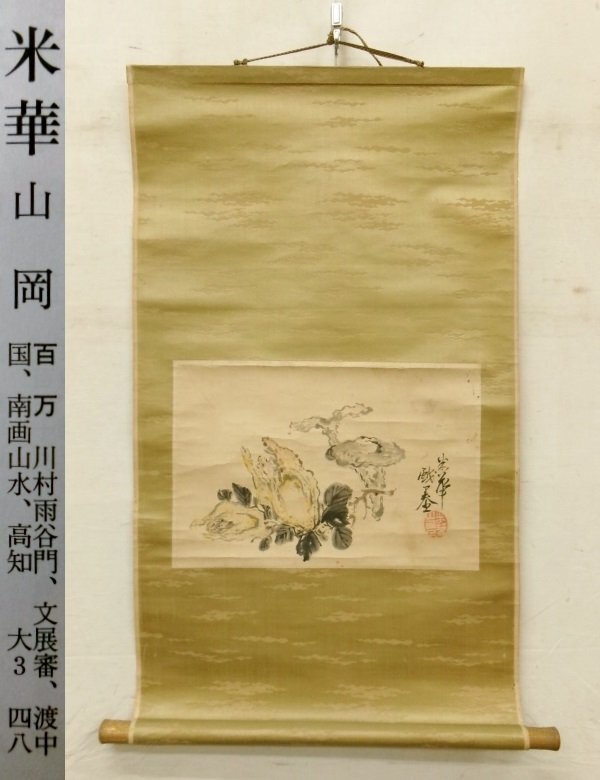 米華
山岡
百万 川村雨谷門、文展審、渡中
国、南画山水、高知 大3 四八
米華
戯墨